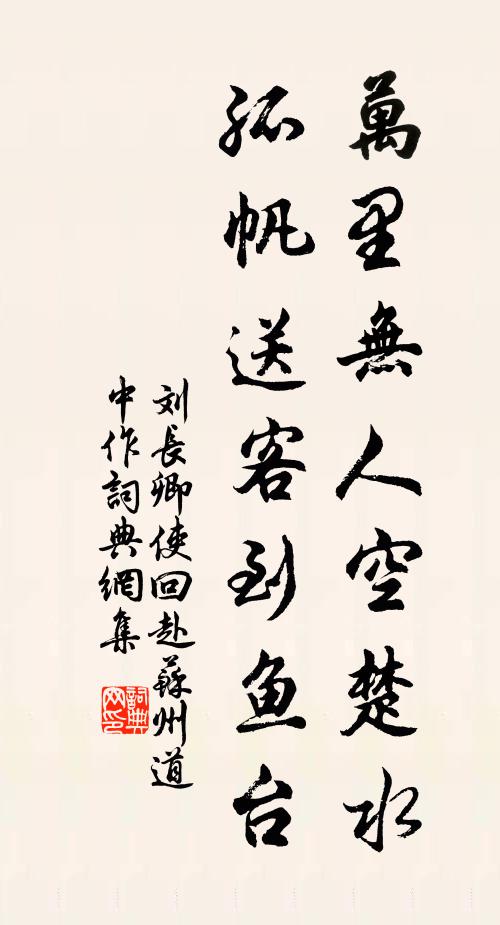 萬里無人空楚水
孤帆送客到鱼台
刘長卿使回赴蘇州道
中作詞典網集
詞典
网印